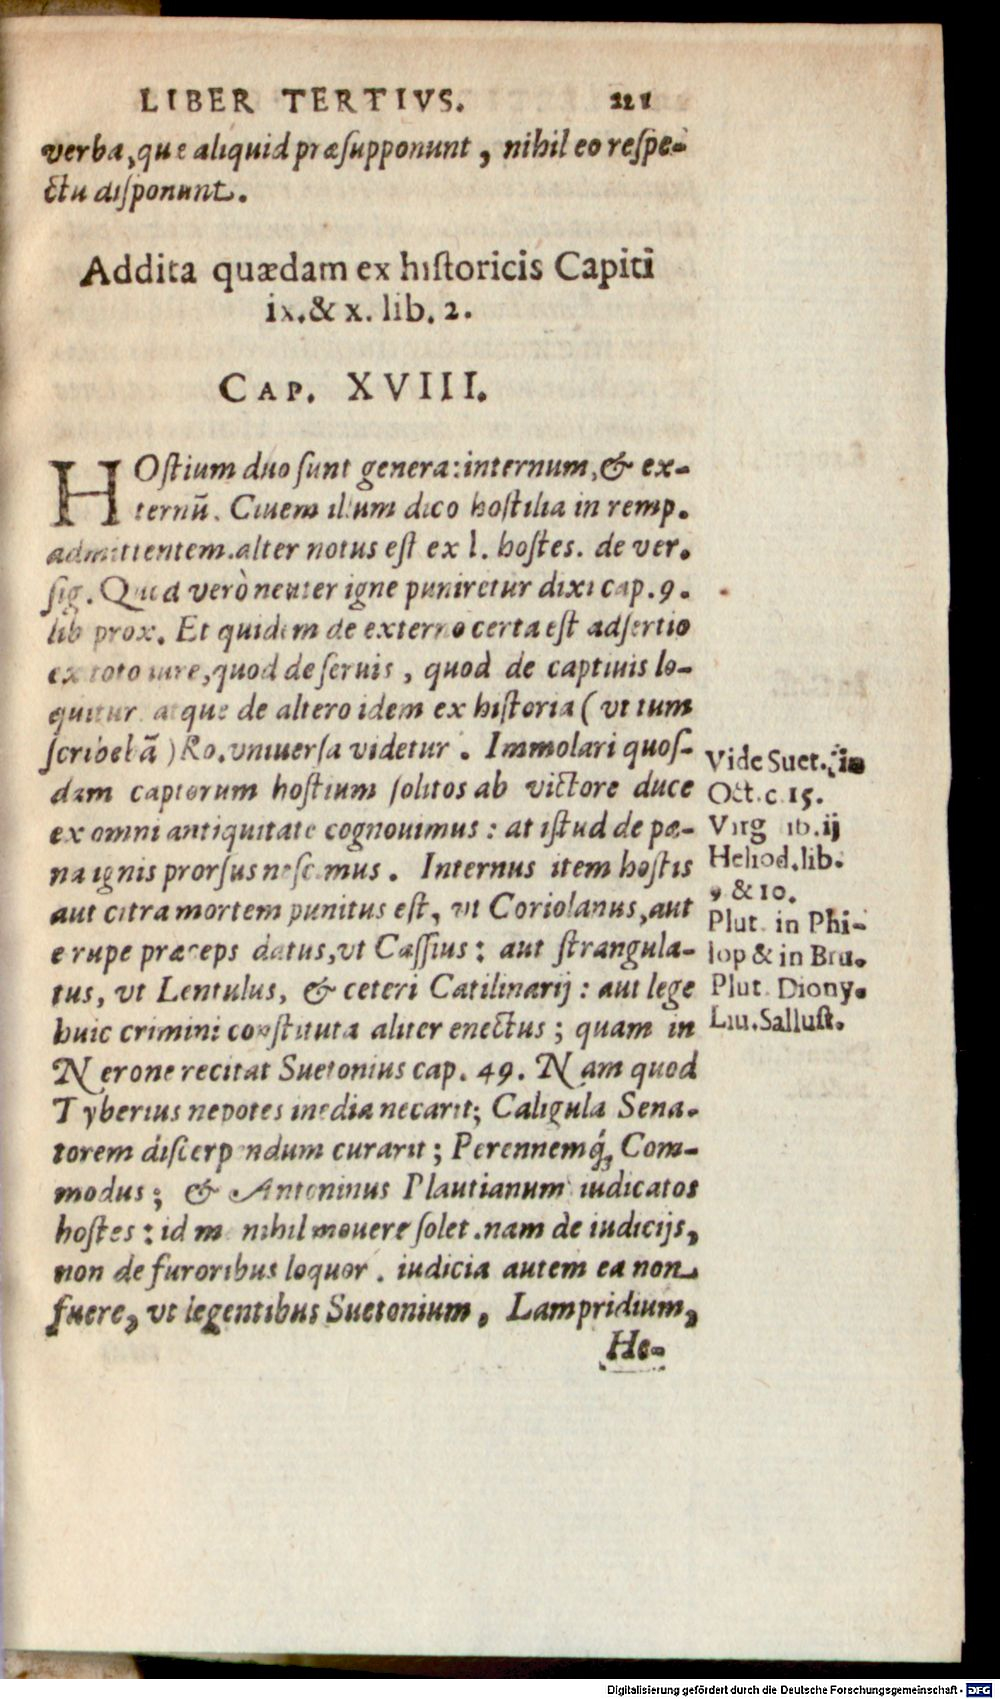 LIBER TERTIVS. 221
verba, que aliquid præsupponunt, nihil eo respe-
ctu disponunt.
Addita quædam ex historicis Capiti
ix. & x. lib. 2.
CAP. XVIII.
HOstium duo sunt genera: internum, & ex-
ternũ. Ciuem illum dico hostilia in remp.
admittentem. alter notus est ex l. hostes. de ver.
sig. Quod verò neuter igne puniretur dixi cap. 9.
lib prox. Et quidem de externo certa est adsertio
ex toto iure, quod de seruis, quod de captiuis lo-
quitur. atque de altero idem ex historia (vt tum
scribebã) Ro. vniuersa videtur. Immolari quos-
dam captorum hostium solitos ab victore duce
ex omni antiquitate cognouimus: at istud de pœ-
na ignis prorsus nescimus. Internus item hostis
aut citra mortem punitus est, vt Coriolanus, aut
e rupe præceps datus, vt Cassius: aut strangula-
tus, vt Lentulus, & ceteri Catilinarij: aut lege
huic crimini constituta aliter enectus; quam in
Nerone recitat Suetonius cap. 49. Nam quod
Tyberius nepotes inedia necarit; Caligula Sena-
torem discerpendum curarit; Perennemq́; Com-
modus; & Antoninus Plautianum iudicatos
hostes: id me nihil mouere solet. nam de iudicijs,
non de furoribus loquor. iudicia autem ea non
fuere, vt legentibus Suetonium, Lampridium,
He-
Vide Suet. in
Oct. c 15.
Virg lib. ij
Heliod. lib.
9 & 10.
Plut. in Phi-
lop & in Bru.
Plut. Diony.
Liu. Sallust.
Digitalisierung gefördert durch die Deutsche Forschungsgemeinschaft - DFG